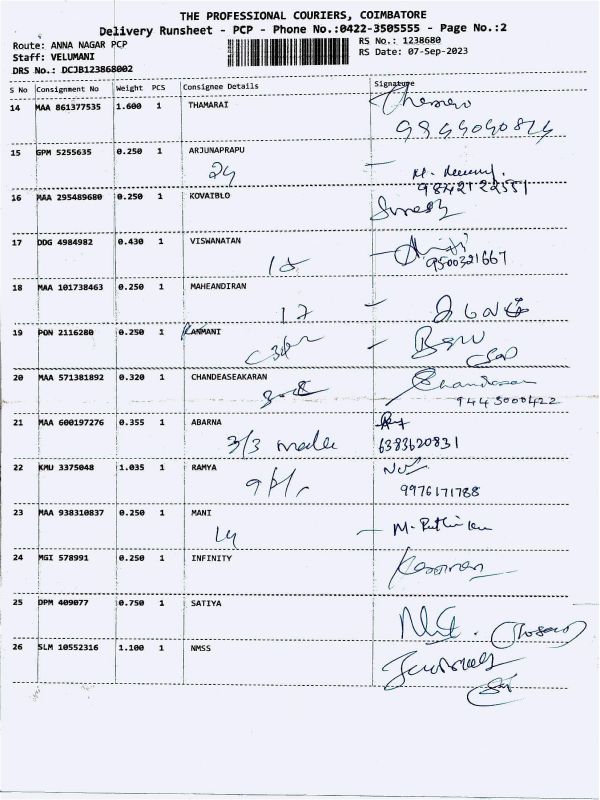 THE PROFESSIONAL COURIERS, COIMBATORE
Delivery Runsheet - PCP - Phone No.:0422-3505555 - Page No.:2
Route: ANNA NAGAR PCP
RS No.: 1238680
Staff: VELUMANI
RS Date: 07-Sep-2023
DRS No.: DCJB123868002
S No Consignment No Weight PCS Consignee Details Signature
14 MAA 861377535 1.600 1 THAMARAI
15 GPM 5255635 0.250 1 ARJUNAPRAPU
24
9842122551
16 MAA 295489680 0.250 1 KOVAIBLO
Suresh
17 DDG 4984982 0.430 1 VISWANATAN
9500321667
18 MAA 101738463 0.250 1 MAHEANDIRAN
17
19 PON 2116280 0.250 1 KANMANI
20 MAA 571381892 0.320 1 CHANDEASEAKARAN
9443000422
21 MAA 600197276 0.355 1 ABARNA
3/3
6383620831
22 KMU 3375048 1.035 1 RAMYA
9976171788
23 MAA 938310837 0.250 1 MANI
14
24 MGI 578991 0.250 1 INFINITY
25 DPM 409077 0.750 1 SATIYA
26 SLM 10552316 1.100 1 NMSS